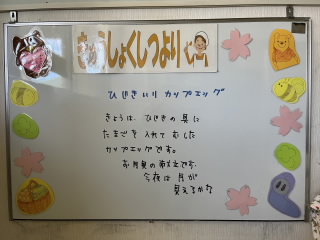 きゅうしょくしつより
ひじき入り カップエッグ
きょうは、ひじきの具に
たまごを入れてむした
カップエッグです。
お月見の献立です。
今夜は月が
見えるかな